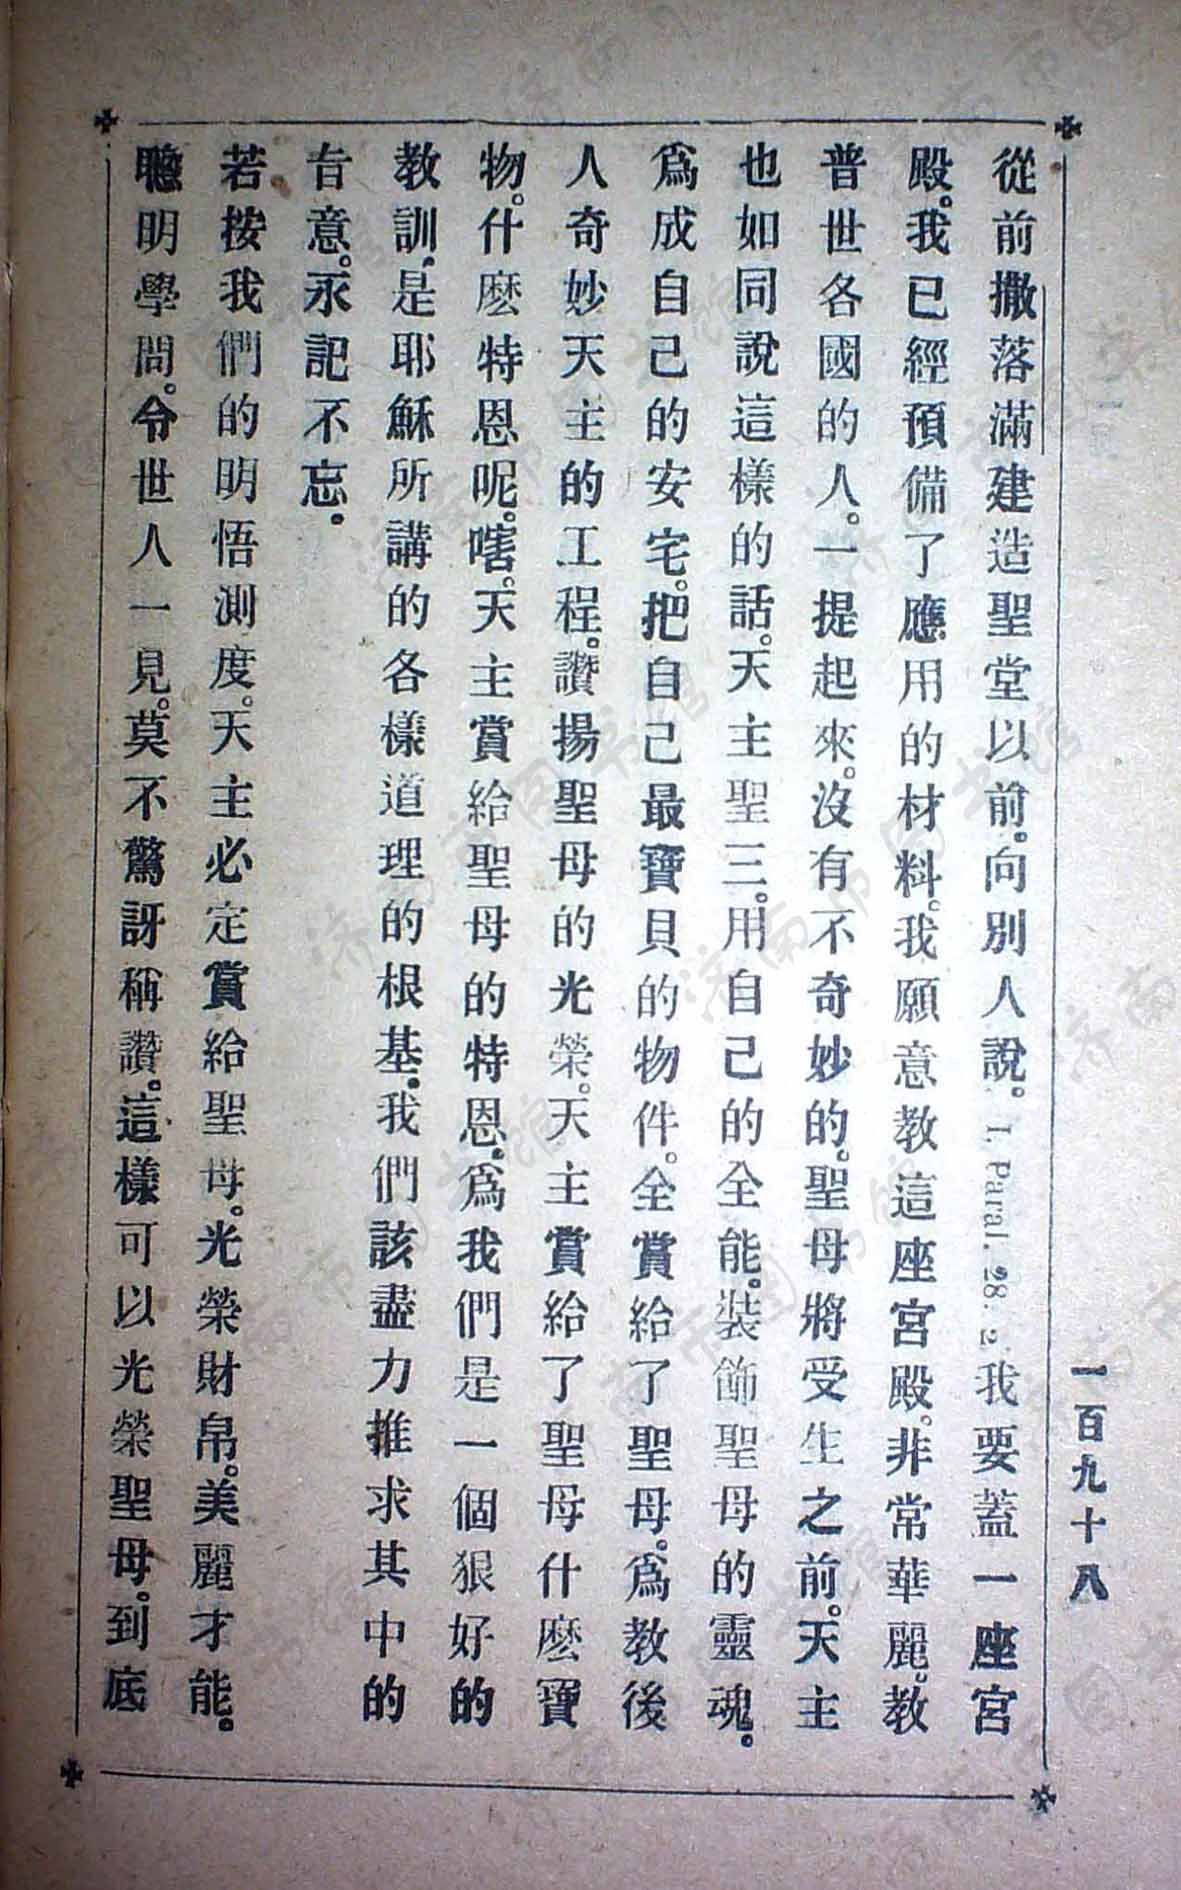 一百九十八
從前撒落滿建造聖堂以前。向別人說。I. Paral. 28. 2 我要蓋一座宮
殿。我已經預備了應用的材料。我願意教這座宮殿。非常華麗。教
普世各國的人。一提起來。沒有不奇妙的。聖母將受生之前。天主
也如同說這樣的話。天主聖三。用自己的全能。裝飾聖母的靈魂。
爲成自己的安宅。把自己最寶貝的物件。全賞給了聖母。爲教後
人奇妙天主的工程。讚揚聖母的光榮。天主賞給了聖母什麽寶
物。什麽特恩呢。嗐。天主賞給聖母的特恩。爲我們是一個狠好的
教訓。是耶穌所講的各樣道理的根基。我們該盡力推求其中的
旨意。永記不忘。
若按我們的明悟測度。天主必定賞給聖母。光榮財帛。美麗才能。
聰明學問。令世人一見。莫不驚訝稱讚。這樣可以光榮聖母。到底
济南市图书馆